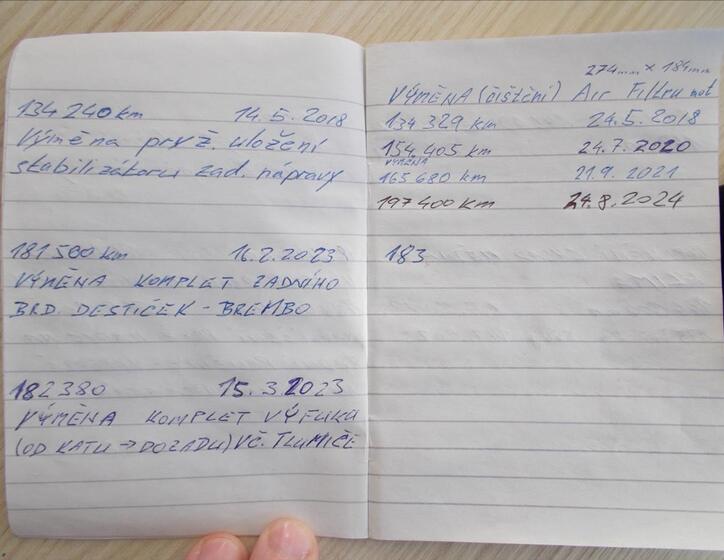 134 240 km 14.5.2018
Výměna pryž. uložení
stabilizátoru zad. nápravy
181 500 km 16.2.2023
VÝMĚNA KOMPLET ZADNÍHO
BRD. DESTIČEK - BREMBO
182380 15.3.2023
VÝMĚNA KOMPLET VÝFUKU
(OD KATU → DOZADU) VČ. TLUMIČE
274mm × 184mm
VÝMĚNA (čištění) Air Filtru mot
134 329 km 24.5.2018
154 405 km 24.7.2020
VÝMĚNA
165 680 km 21.9.2021
197 400 km 24.8.2024
183